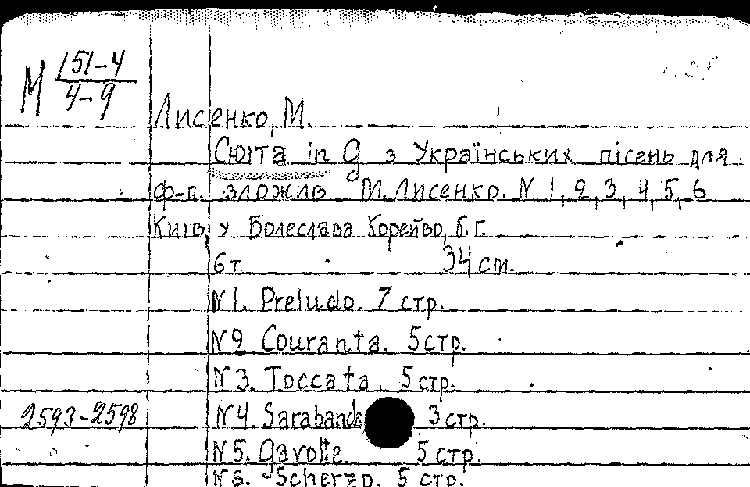 М 151-4
4-9
Лисенко, М.
Сюіта in g з Українських пісень для
ф-п. зложив М. Лисенко. N 1, 2, 3, 4, 5, 6
Київ, у Болеслава Корейво, б.г.
6 т. 34 cm.
N1. Preludo. 7 стр.
N2 Couranta. 5 стр.
N3. Toccata. 5 стр.
2593-2598 N4. Sarabande 3 стр.
N5. Gavotte. 5 стр.
N6. Scherzo. 5 стр.